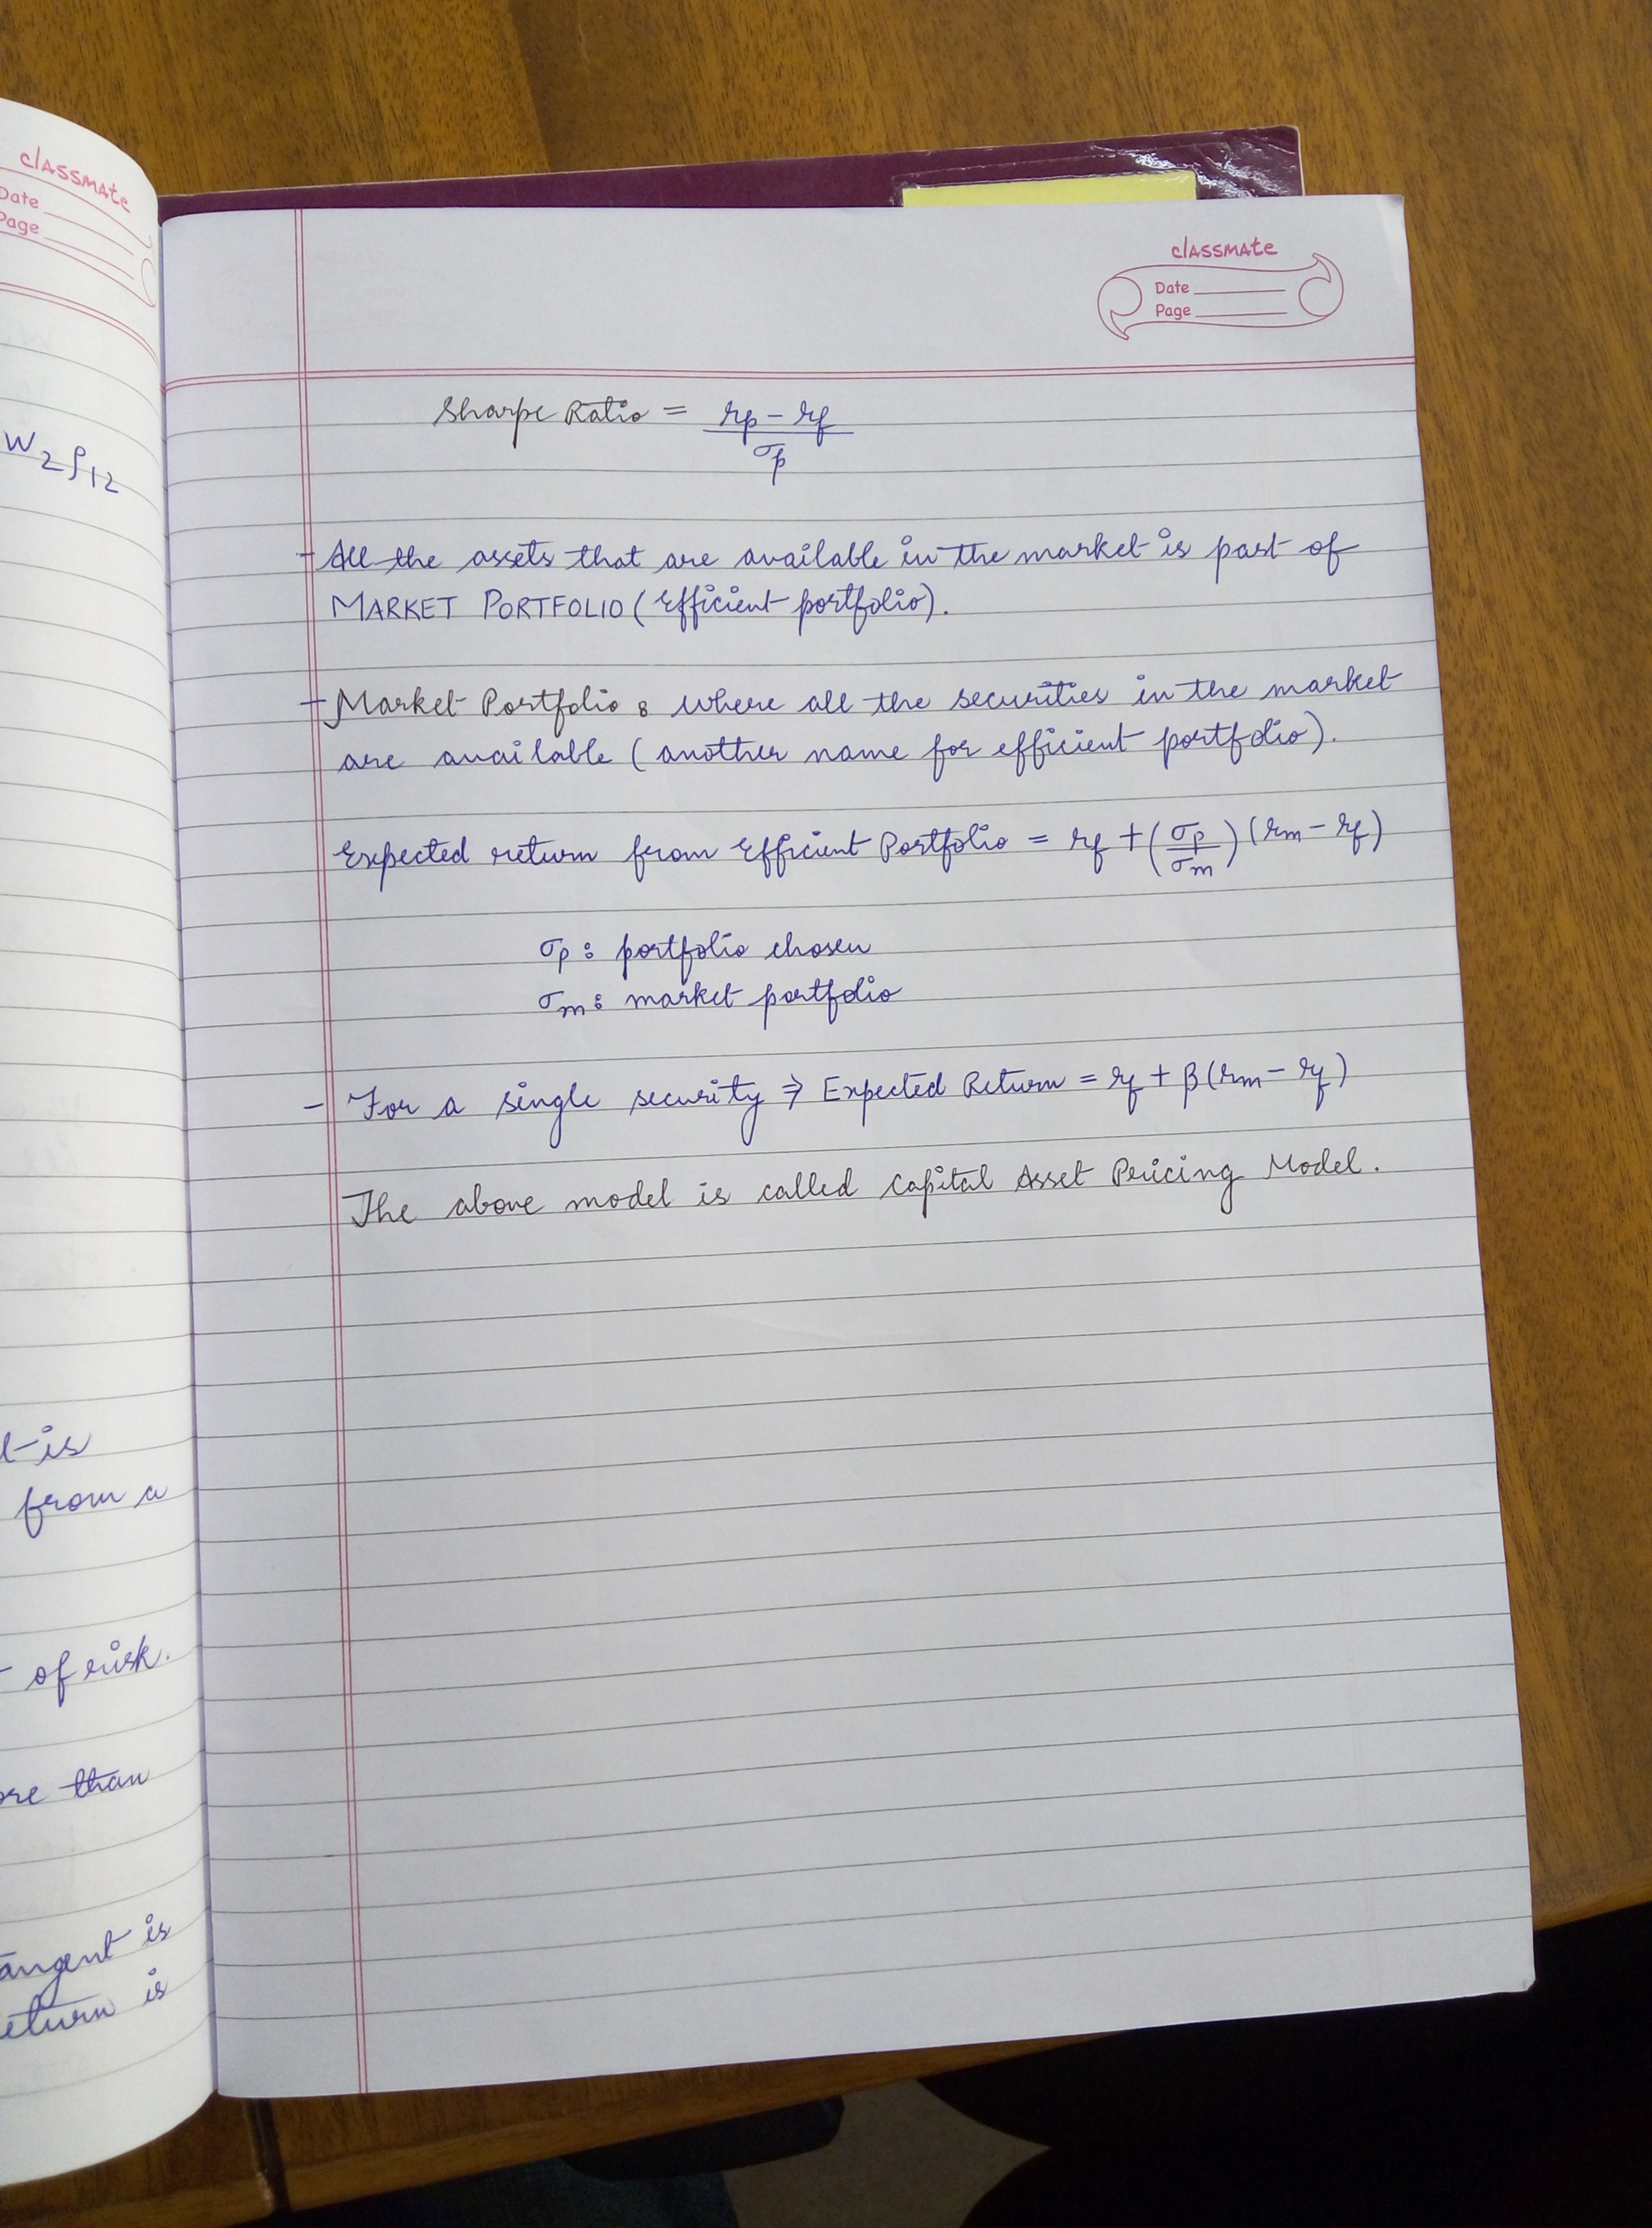 classmate
Date
Page
W₂ρ₁₂
is
from a
of risk.
than
tangent is
return is
classmate
Date
Page
Sharpe Ratio = (rp - rf) / σp
- All the assets that are available in the market is part of
MARKET PORTFOLIO (Efficient portfolio).
- Market Portfolio : where all the securities in the market
are available (another name for efficient portfolio).
Expected return from Efficient Portfolio = rf + (σp/σm) (rm - rf)
σp : portfolio chosen
σm : market portfolio
- For a single security ⇒ Expected Return = rf + β(rm - rf)
The above model is called Capital Asset Pricing Model.